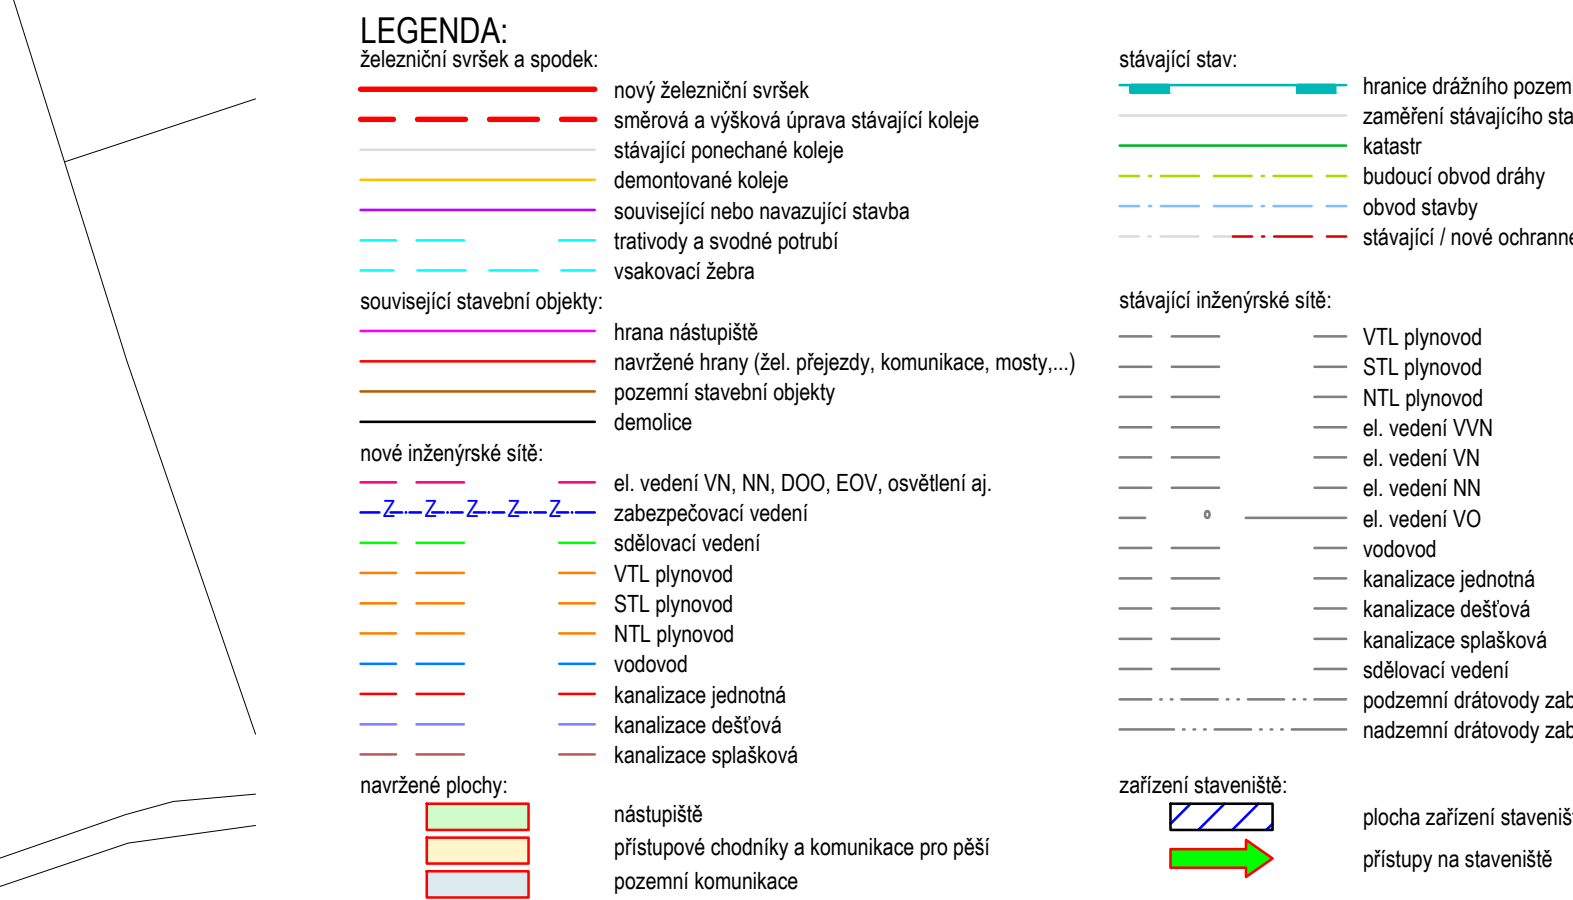 LEGENDA:
železniční svršek a spodek:
nový železniční svršek
směrová a výšková úprava stávající koleje
stávající ponechané koleje
demontované koleje
související nebo navazující stavba
trativody a svodné potrubí
vsakovací žebra
související stavební objekty:
hrana nástupiště
navržené hrany (žel. přejezdy, komunikace, mosty,...)
pozemní stavební objekty
demolice
nové inženýrské sítě:
el. vedení VN, NN, DOO, EOV, osvětlení aj.
Z Z Z Z Z zabezpečovací vedení
sdělovací vedení
VTL plynovod
STL plynovod
NTL plynovod
vodovod
kanalizace jednotná
kanalizace dešťová
kanalizace splašková
navržené plochy:
nástupiště
přístupové chodníky a komunikace pro pěší
pozemní komunikace
stávající stav:
hranice drážního
zaměření stávajícího
katastr
budoucí obvod dráhy
obvod stavby
stávající / nové
stávající inženýrské sítě:
VTL plynovod
STL plynovod
NTL plynovod
el. vedení VVN
el. vedení VN
el. vedení NN
el. vedení VO
vodovod
kanalizace jednotná
kanalizace dešťová
kanalizace splašková
sdělovací vedení
podzemní drátovody
nadzemní drátovody
zařízení staveniště:
plocha zařízení
přístupy na staveniště